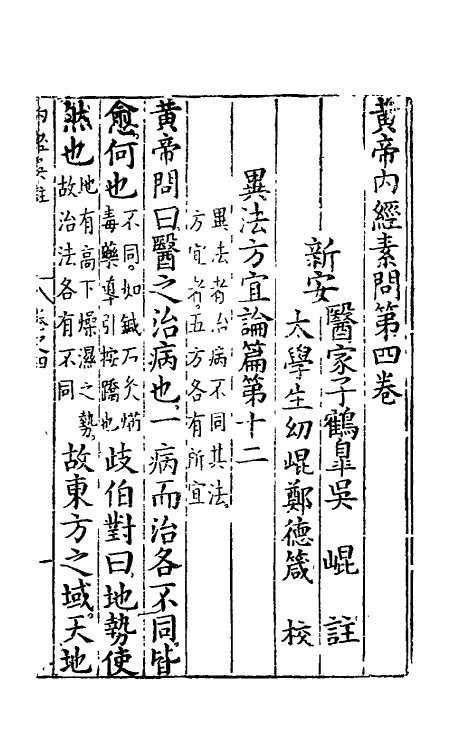 黃帝內經素問第四卷
新安
醫家子鶴皐吳崐註
太學生幼崐鄭德箴校
異法方宜論篇第十二
異法者治病不同其法。
方宜者五方各有所宜
黃帝問曰醫之治病也一病而治各不同皆
愈何也
不同。如鍼石灸焫
毒藥導引按蹻也
歧伯對曰地勢使
然也
地有高下燥濕之勢。
故治法各有不同
故東方之域。天地
內經吳註
卷之四
一